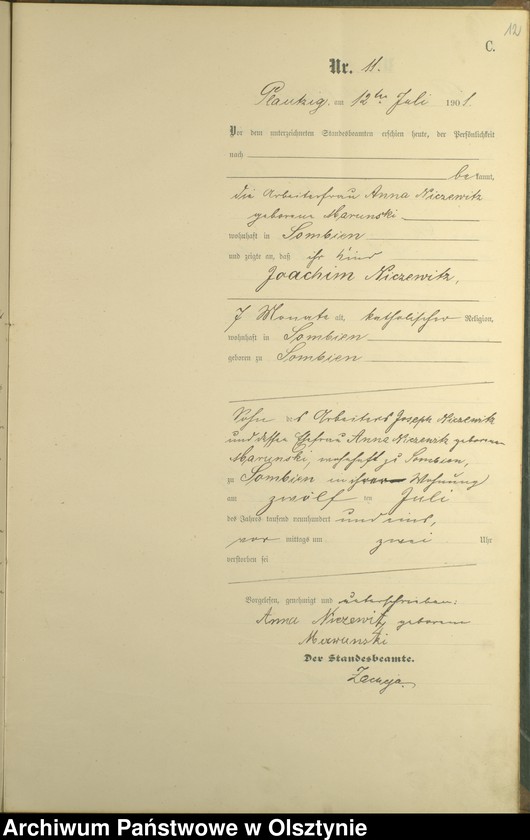 12
C.
Nr. 11.
Plautzig, am 12ten Juli 1901.
Vor dem unterzeichneten Standesbeamten erschien heute, der Persönlichkeit
nach
bekannt,
die Arbeiterfrau Anna Niczewitz
geborene Marunski
wohnhaft in Sombien
und zeigte an, daß ihr Kind
Joachim Niczewitz,
7 Monate alt, katholischer Religion,
wohnhaft in Sombien
geboren zu Sombien
Sohn des Arbeiters Joseph Niczewitz
und dessen Ehefrau Anna Niczewitz geborenen
Marunski, wohnhaft zu Sombien,
zu Sombien in Wohnung
am zwölf ten Juli
des Jahres tausend neunhundert und eins,
vor mittags um zwei Uhr
verstorben sei
Vorgelesen, genehmigt und unterschrieben:
Anna Niczewitz geborene
Marunski
Der Standesbeamte.
Archiwum Państwowe w Olsztynie